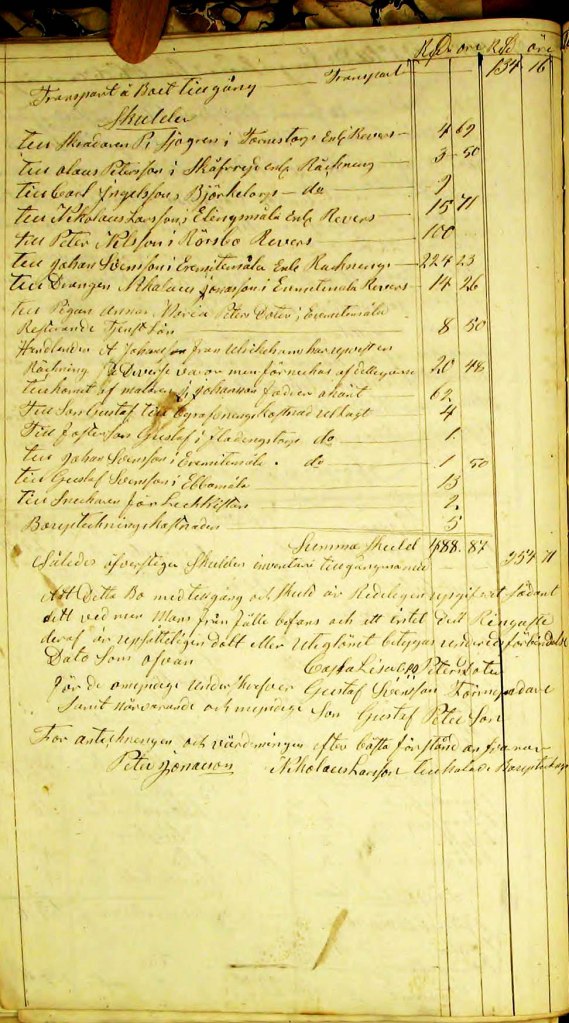 Rd öre Rd öre
Transport å Boet tillgång — Transport 134 16
Skulder
till Skradaren P. Sjogren i Tornstorp Enl. Revers — 4 69
till Olaus Petersson i enl. Räckning 3 50
till Carl Ingelsson i Björketorp — do 9
till Nikolaus Larsson i Elingsmåla Enl. Revers 15 71
till Peter Nilsson i Rörsbo Revers — 100
till Johan Svensson i Eremitemåla Enl. Rackning 224 23
till Drangen Nikolaus Jonasson i Eremitemåla Revers 14 26
till Pigan Anna Maria Peters Doter i Eremitemåla
Resterande tjenst lön 8 50
Handlanden A Johansson från Ulrikehamn har
Räckning på Diverse varor men förnekas af 20 48
till af i Johannes fader okänt 62
Till Son Gustaf till Begrafnings Kostnad Utlagt 4
Till Fosterson Gustaf i do 1
till Johan Svensson i Eremitemåla do 1 50
till Gustaf Svensson i Ebbamåla 13
till Snickaren för Lockkistan 2
Boupteckningskostnader 5
Summa skuld 488. 87
Således öfverstiger Skulden inventarii tillgångarnande 354 71
Att Detta Bo med tillgång och Skuld är Redeligen uppgifvet sådant
ditt ved min Mans från fälle befans och att intet ditt Ringaste
deraf är uppsåtteligen dolt eller Utglömt betygas under Eds förbindelse
Dato Som ofvan Cajsa Lisa Peters Doter
För de omyndige underskrifver Gustaf Svensson
Samt närvarande och myndige Son Gustaf Peter Son
För anteckningen och värderingen efter bästa förstånd
Peter Jonasson Nikolaus Larsson